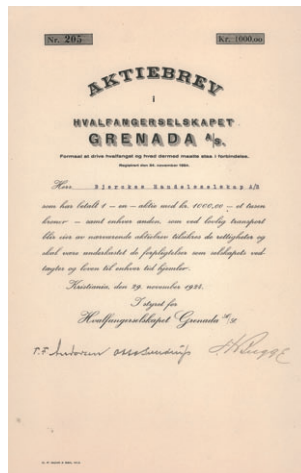 Nr. 265
Kr. 1000,00
AKTIEBREV
i
HVALFANGERSELSKAPET
GRENADA A/S.
Formaal at drive hvalfangst og hvad dermed maatte staa i forbindelse.
Registrert den november 1924.
Herr Bjerckes Handelsselskap A/S
som har betalt 1 – en – aktie med kr. 1000,00 – et tusen
kroner – samt enhver anden, som ved lovlig transport
blir eier av nærværende aktiebrev tilsikres de rettigheter og
skal være underkastet de forpligtelser som selskapets ved-
tægter og loven til enhver tid hjemler.
Kristiania, den 29. november 1924.
I styret for
Hvalfangerselskapet Grenada A/S